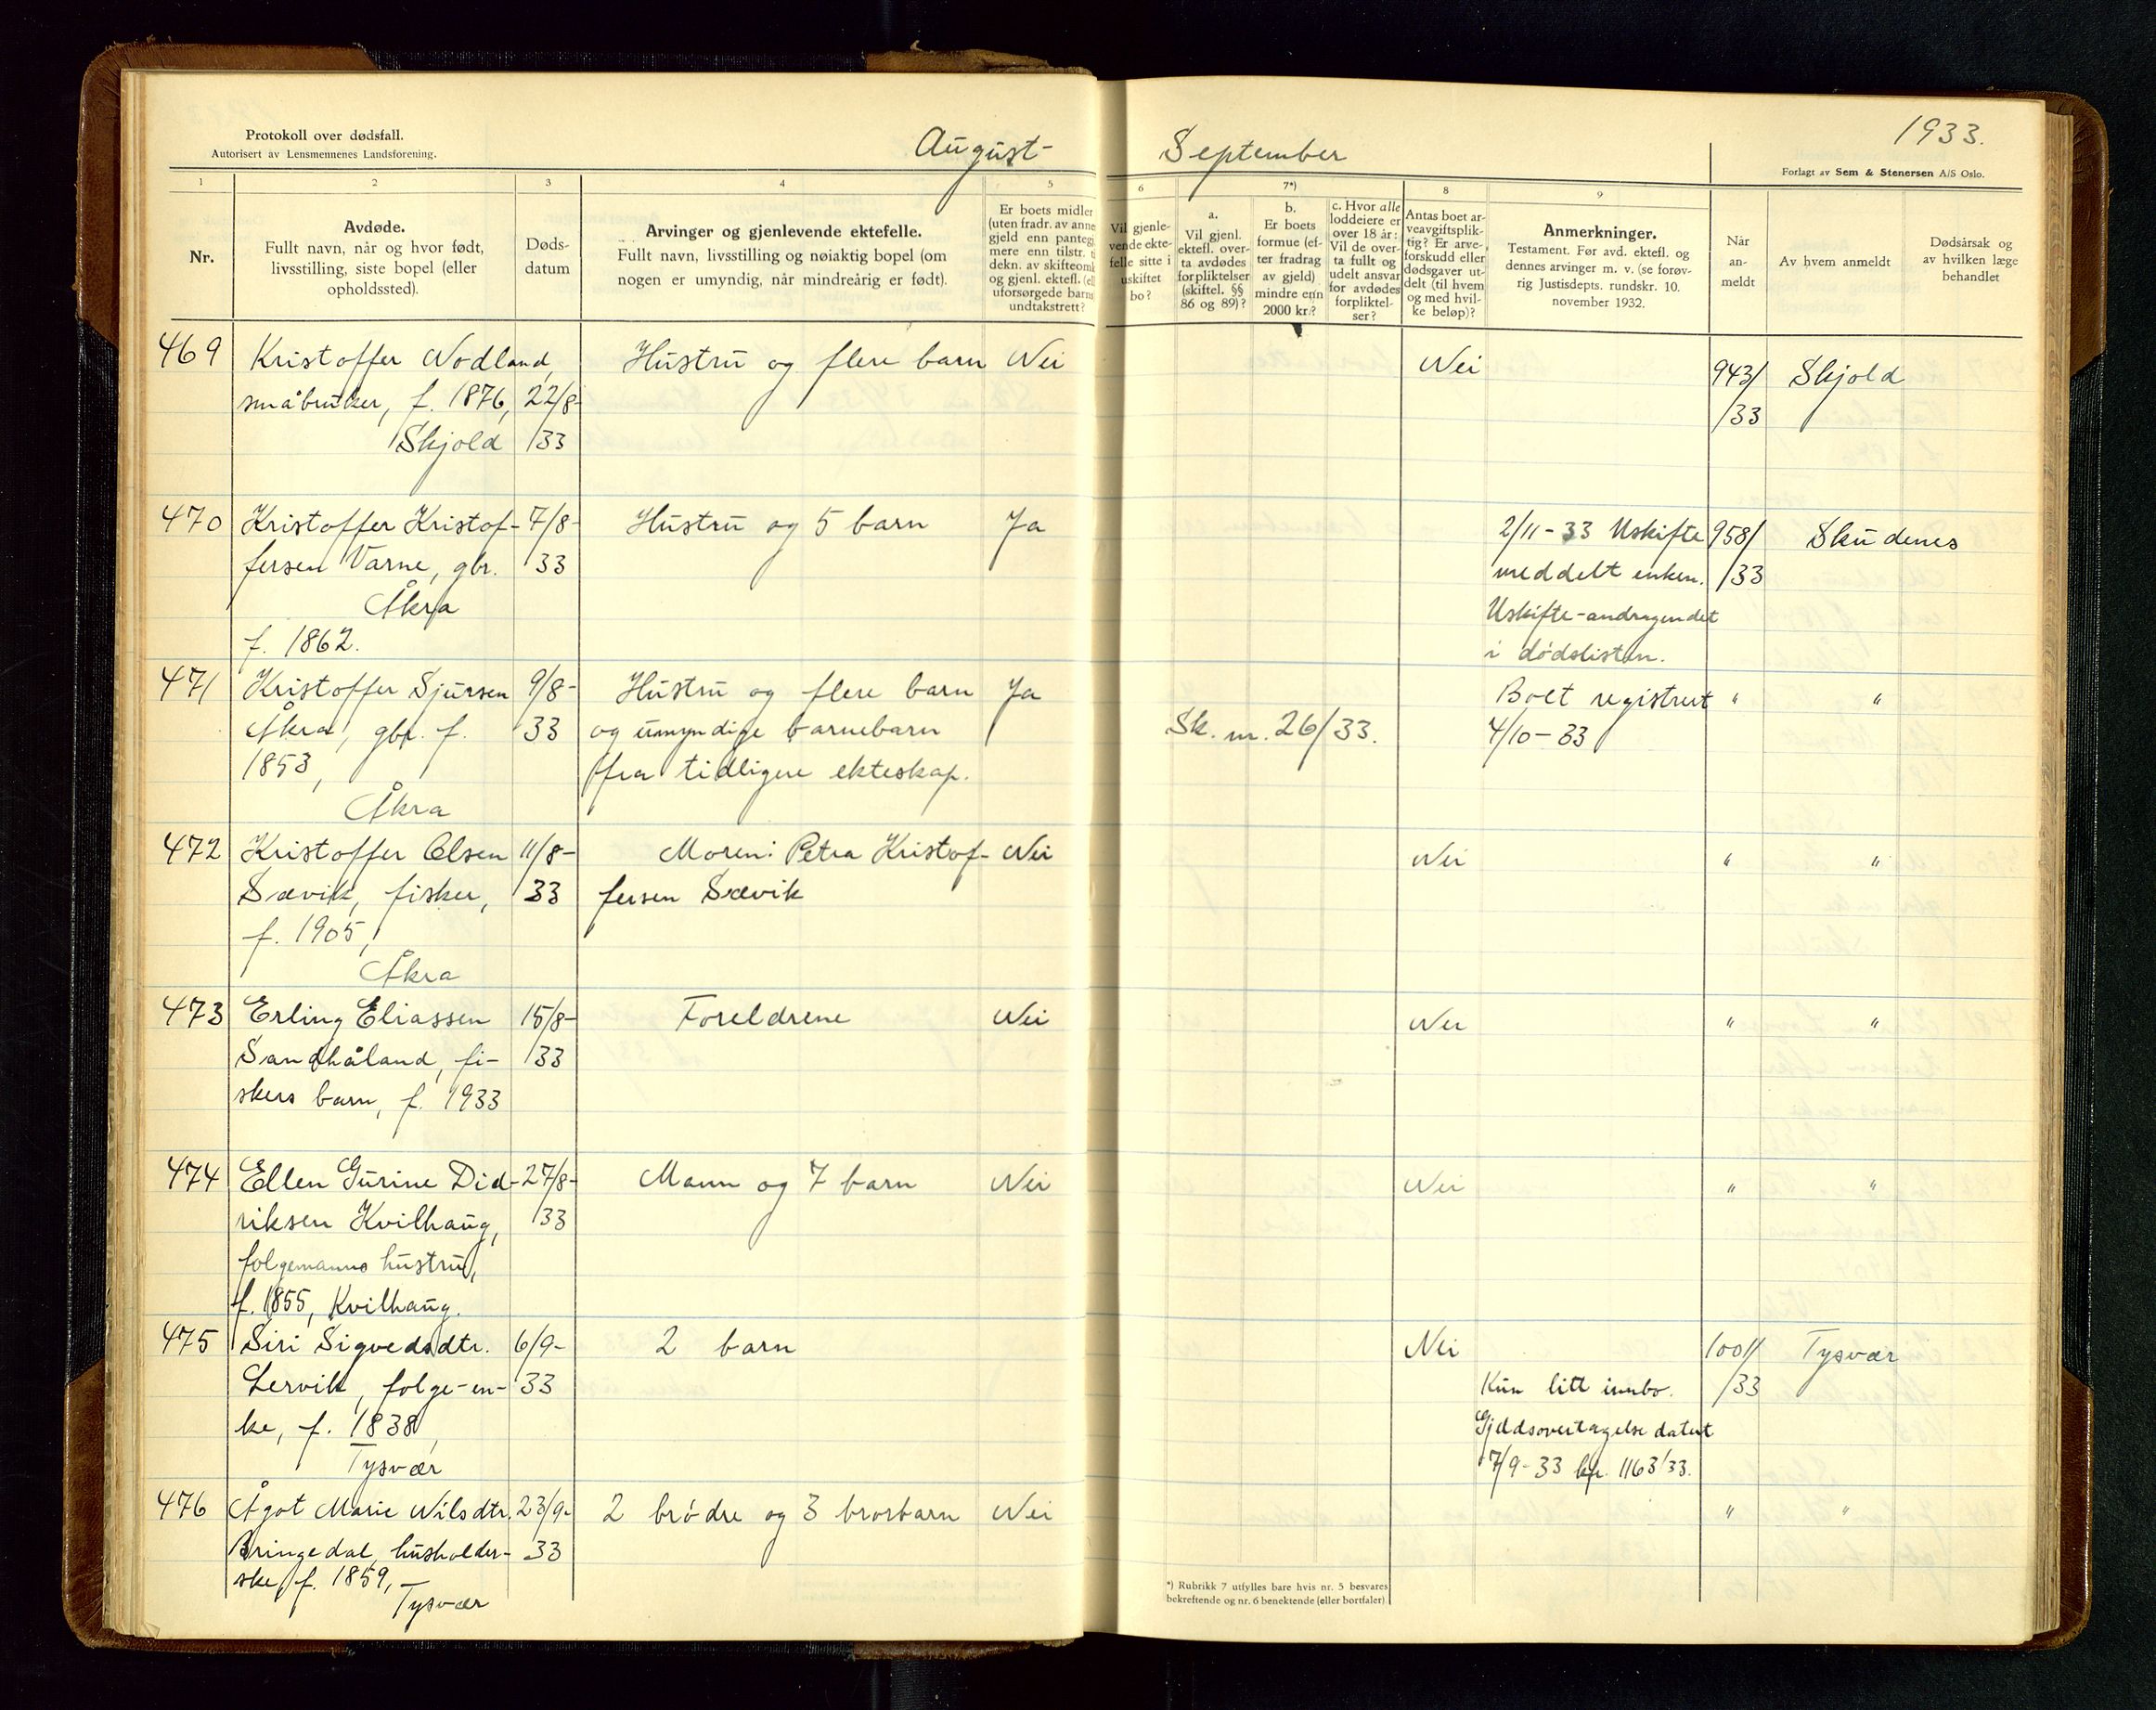 Protokoll over dødsfall.
Autorisert av Lensmennenes Landsforening.
August-
September
1933.
Forlagt av Sem & Stenersen A/S Oslo.
1
2
3
4
5
6
7*)
8
9
Nr.
Avdøde.
Fullt navn, når og hvor født,
livsstilling, siste bopel (eller
opholdssted).
Døds-
datum
Arvinger og gjenlevende ektefelle.
Fullt navn, livsstilling og nøiaktig bopel (om
nogen er umyndig, når mindreårig er født).
Er boets midler
(uten fradr. av anne
gjeld enn panteg.
mere enn tilstr. ti
dekn. av skifteomk
og gjenl. ektefl. (el
uforsørgede barns
undtakstrett?
Vil gjenle-
vende ekte-
felle sitte i
uskiftet
bo?
a.
Vil gjenl.
ektefl. over-
ta avdødes
forpliktelser
(skiftel. §§
86 og 89)?
b.
Er boets
formue (ef-
ter fradrag
av gjeld)
mindre enn
2000 kr.?
c. Hvor alle
loddeiere er
over 18 år:
Vil de over-
ta fullt og
udelt ansvar
for avdødes
forpliktel-
ser?
Antas boet ar-
veavgiftsplik-
tig? Er arve-
forskudd eller
dødsgaver ut-
delt (til hvem
og med hvil-
ke beløp)?
Anmerkninger.
Testament. Før avd. ektefl. og
dennes arvinger m. v. (se forøv-
rig Justisdepts. rundskr. 10.
november 1932.
Når
an-
meldt
Av hvem anmeldt
Dødsårsak og
av hvilken læge
behandlet
469 Kristoffer Nodland, Hustru og flere barn Nei Nei 943/ Skjold
småbruker, f. 1876, 22/8- /33
Skjold /33
470 Kristoffer Kristof- 7/8- Hustru og 5 barn Ja 2/11-33 Uskifte 958/ Skudenes
fersen Varne, gbr. /33 meddelt enken. /33
Åkra Uskifte-andragendet
f. 1862. i dødslisten.
471 Kristoffer Sjursen 9/8- Hustru og flere barn Ja Boet registrert " "
Åkra, gbr. f. 33 og umyndige barnebarn Sk. nr. 26/33. 4/10-33
1853, fra tidligere ekteskap.
Åkra
472 Kristoffer Olsen 11/8- Moren: Petra Kristof- Nei Nei " "
Sævik, fisker, /33 fersen Sævik
f. 1905,
Åkra
473 Erling Eliassen 15/8- Foreldrene Nei Nei " "
Sandhåland, fi- /33
skers barn, f. 1933
474 Ellen Gurine Did- 27/8- Mann og 7 barn Nei Nei " "
riksen Kvilhaug, /33
folgemanns hustru,
f. 1855, Kvilhaug.
475 Siri Sigvedsdtr. 6/9- 2 barn Nei 1001/ Tysvær
Lervik, folge-en- 33 Kun litt innbo. /33
ke, f. 1838, Gjeldsovertagelse datert
Tysvær 7/9-33 kpr. 1163/33.
476 Ågot Marie Nilsdtr. 23/9- 2 brødre og 3 brorbarn Nei " "
Bringedal, husholder- 33
ske, f. 1859,
Tysvær
*) Rubrikk 7 utfylles bare hvis nr. 5 besvares
bekreftende og nr. 6 benektende (eller bortfaler)